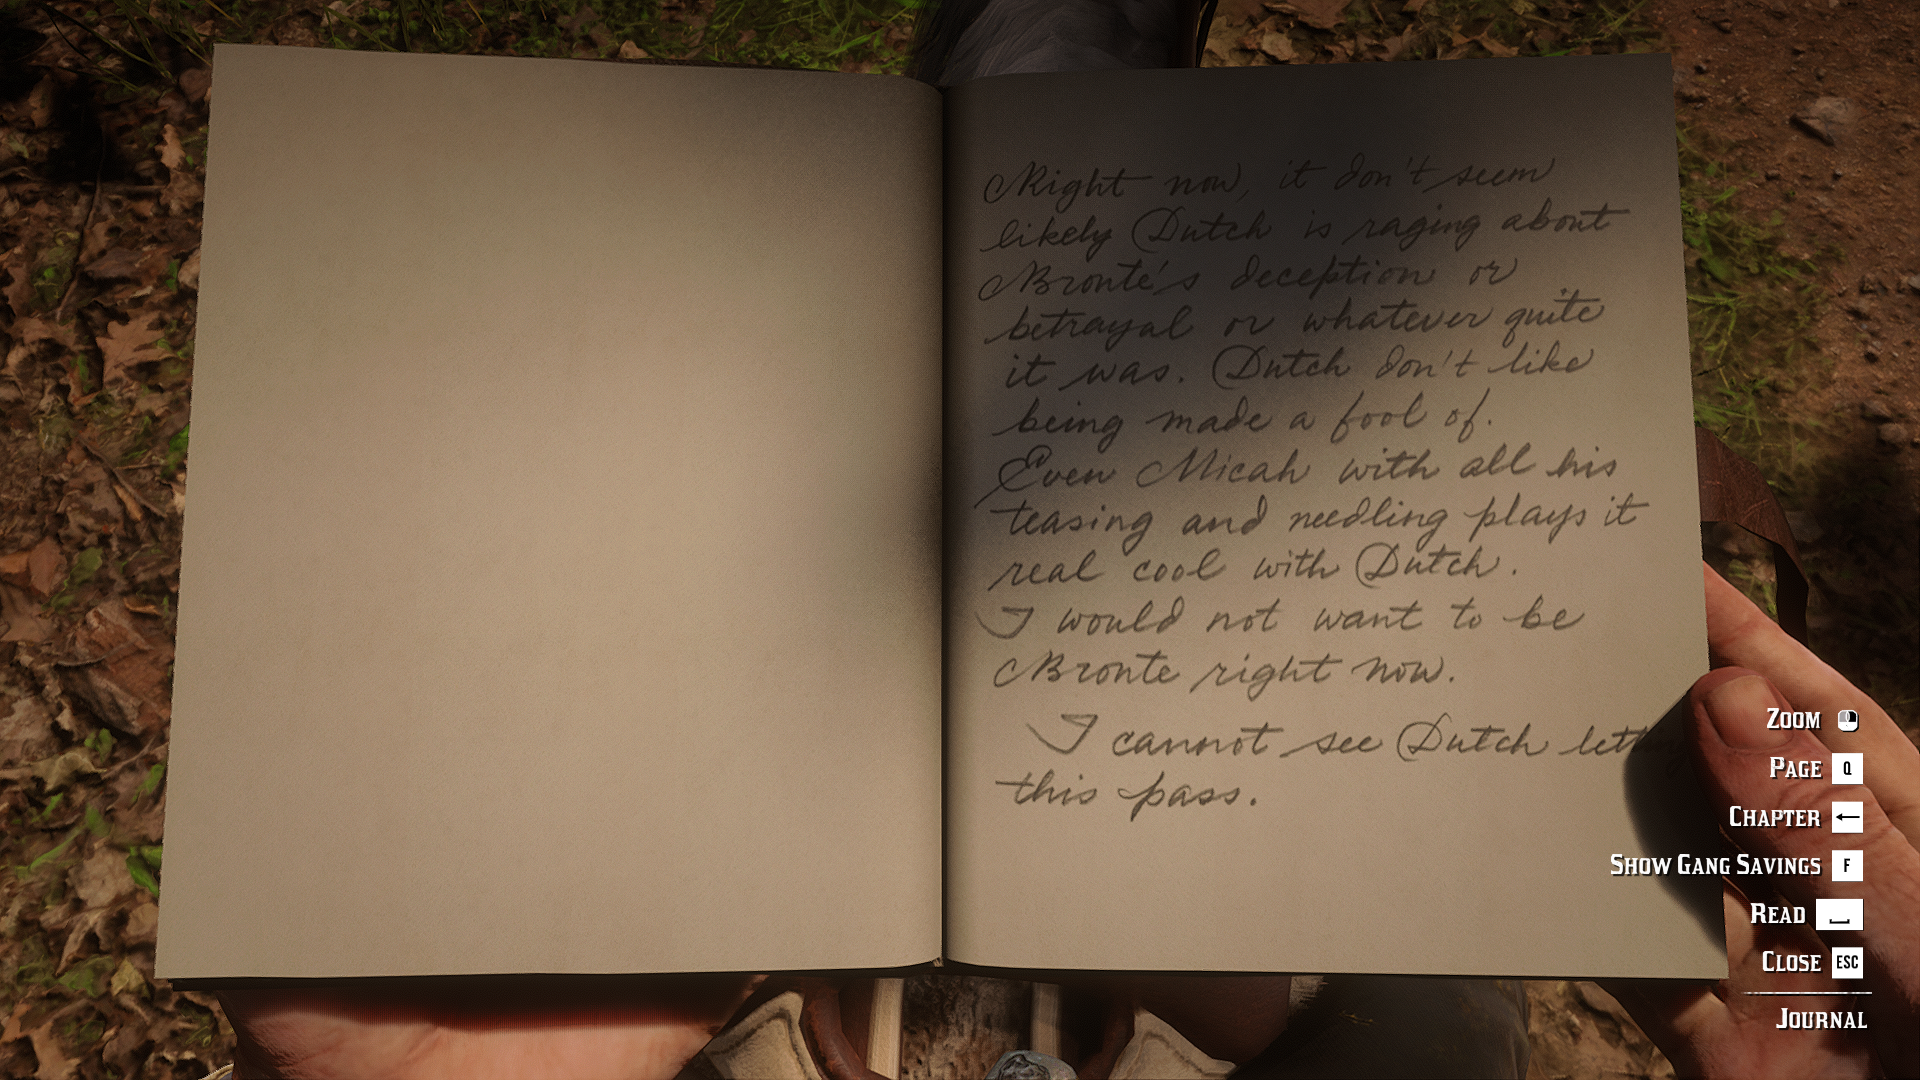 Right now, it don't seem
likely Dutch is raging about
Bronte's deception or
betrayal or whatever quite
it was. Dutch don't like
being made a fool of.
Even Micah with all his
teasing and needling plays it
real cool with Dutch.
I would not want to be
Bronte right now.
I cannot see Dutch
this pass.
ZOOM
PAGE Q
CHAPTER ←
SHOW GANG SAVINGS F
READ
CLOSE ESC
JOURNAL